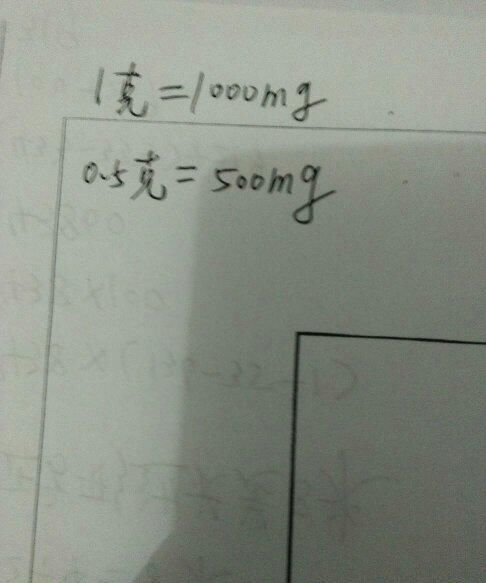 1克=1000mg
0.5克=500mg